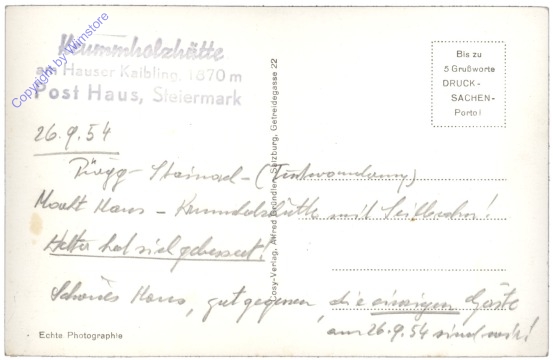 Krummholzhütte
am Hauser Kaibling, 1870 m
Post Haus, Steiermark
Copyright by Wimstore
Bis zu
5 Grußworte
DRUCK-
SACHEN-
Porto!
26.9.54
Pürgg - Steinach - (
Markt Haus - Krummholzhütte mit Seilbahn!
Wetter hat sich gebessert!
Schönes Haus, gut gegessen, die einzigen Gäste
am 26.9.54 sind wir!
Cosy-Verlag, Alfred Gründler, Salzburg, Getreidegasse 22
Echte Photographie